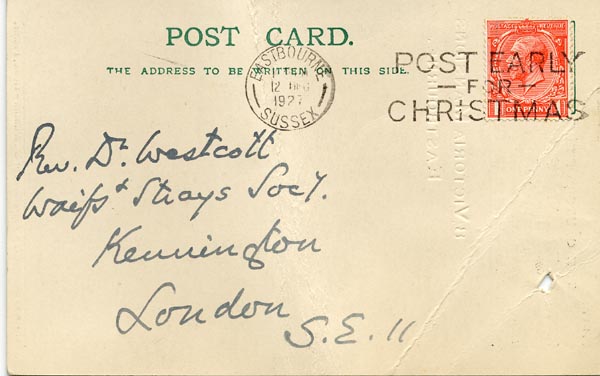 POST CARD.
THE ADDRESS TO BE WRITTEN ON THIS SIDE.
EASTBOURNE
12 DEC
1927
SUSSEX
POST EARLY
FOR
CHRISTMAS
ONE PENNY
Rev. Dr. Westcott
Waifs & Strays Socy.
Kennington
London
S.E. 11